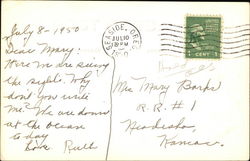 July 8 - 1950
Dear Mary:
Here we are seeing
the sights. Why
don't you write
me? We are down
at the ocean
to-day
Love Ruth
SEASIDE, OREG.
JUL 10
PM
1950
1 CENT 1
Mary Banks
R.R. #1
Neodesha,
Kansas.